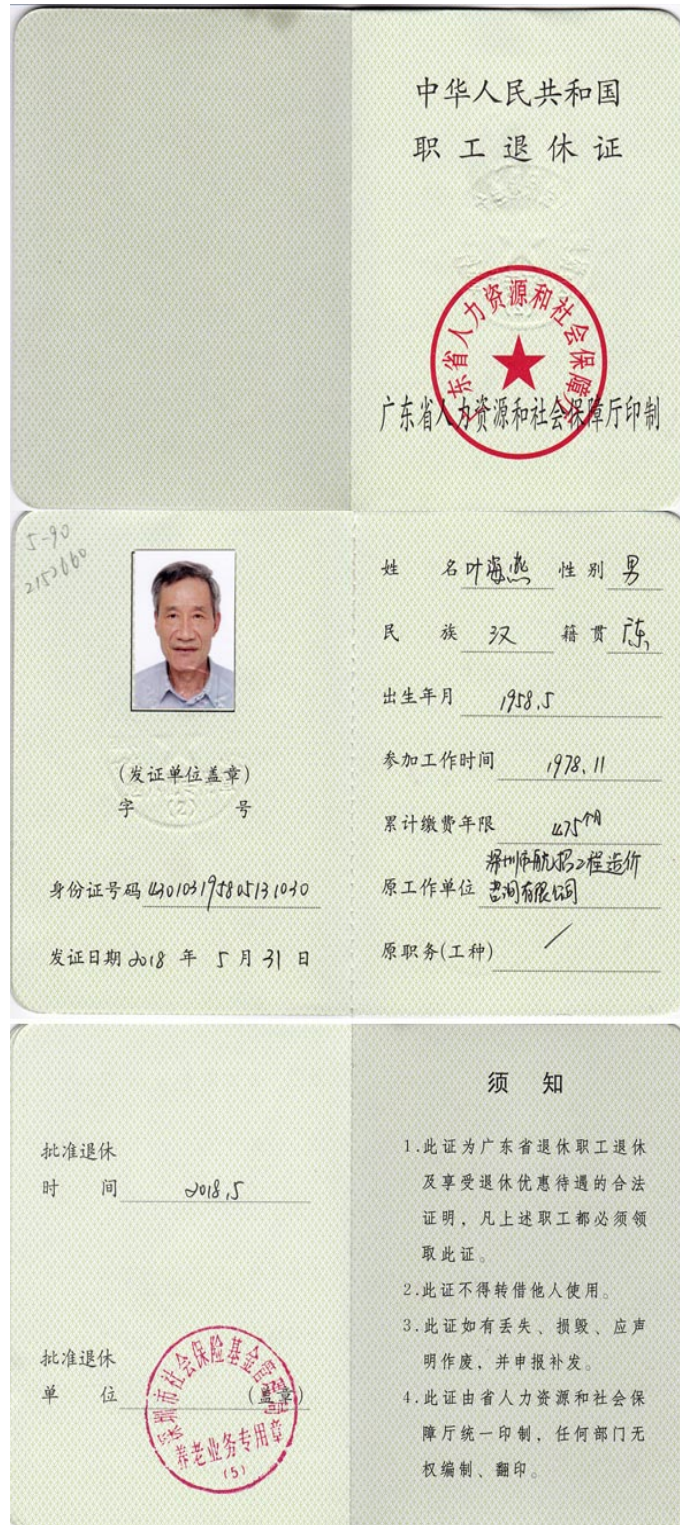 中华人民共和国
职工退休证
广东省人力资源和社会保障厅
广东省人力资源和社会保障厅印制
5-90
2152660
(发证单位盖章)
字 (2) 号
身份证号码 430103195805131030
发证日期 2018 年 5 月 31 日
姓 名 叶海燕 性别 男
民 族 汉 籍贯 广东
出生年月 1958.5
参加工作时间 1978.11
累计缴费年限 475个月
原工作单位 深圳市航招工程造价
咨询有限公司
原职务(工种) /
批准退休
时 间 2018.5
批准退休
单 位 (盖章)
深圳市社会保险基金管理局
养老业务专用章
(5)
须 知
1.此证为广东省退休职工退休
及享受退休优惠待遇的合法
证明，凡上述职工都必须领
取此证。
2.此证不得转借他人使用。
3.此证如有丢失、损毁、应声
明作废，并申报补发。
4.此证由省人力资源和社会保
障厅统一印制，任何部门无
权编制、翻印。